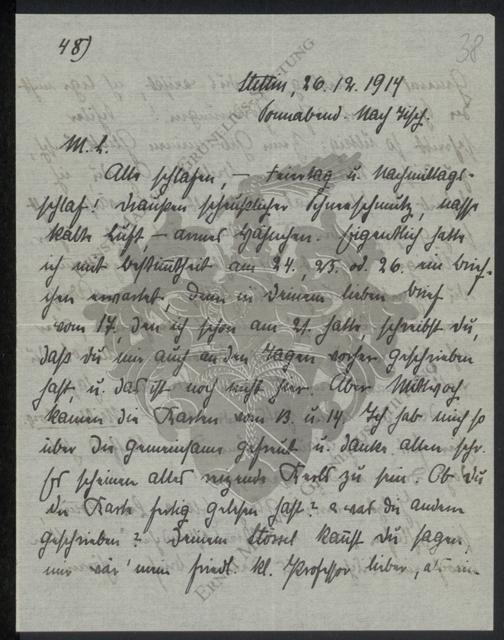 48)
38
Stettin, 26.12.1914
Sonnabend. Nach Tisch.
M. L.
Alle schlafen, — Feiertag u. Nachmittags-
schlaf! Draußen scheußlicher Schneeschmutz, nasse
kalte Luft, — armes Hähnchen. Eigentlich hatte
ich mit Bestimmtheit am 24., 25. od. 26. ein Brief-
chen erwartet, denn in Deinem lieben Brief
vom 17., den ich schon am 21. hatte, schreibst Du,
daß Du mir auch an den Tagen vorher geschrieben
hast, u. das ist noch nicht hier. Aber Mittwoch
kamen die Karten vom 13. u. 14. Ich hab mich so
über die gemeinsame gefreut u. danke allen sehr.
Es scheinen alles reizende Kerls zu sein. Ob Du
die Karte fertig gelesen hast? u. was die andern
geschrieben? Deinem Stössel kannst Du sagen,
mir wär' mein friedl. kl. Professor lieber, als ein